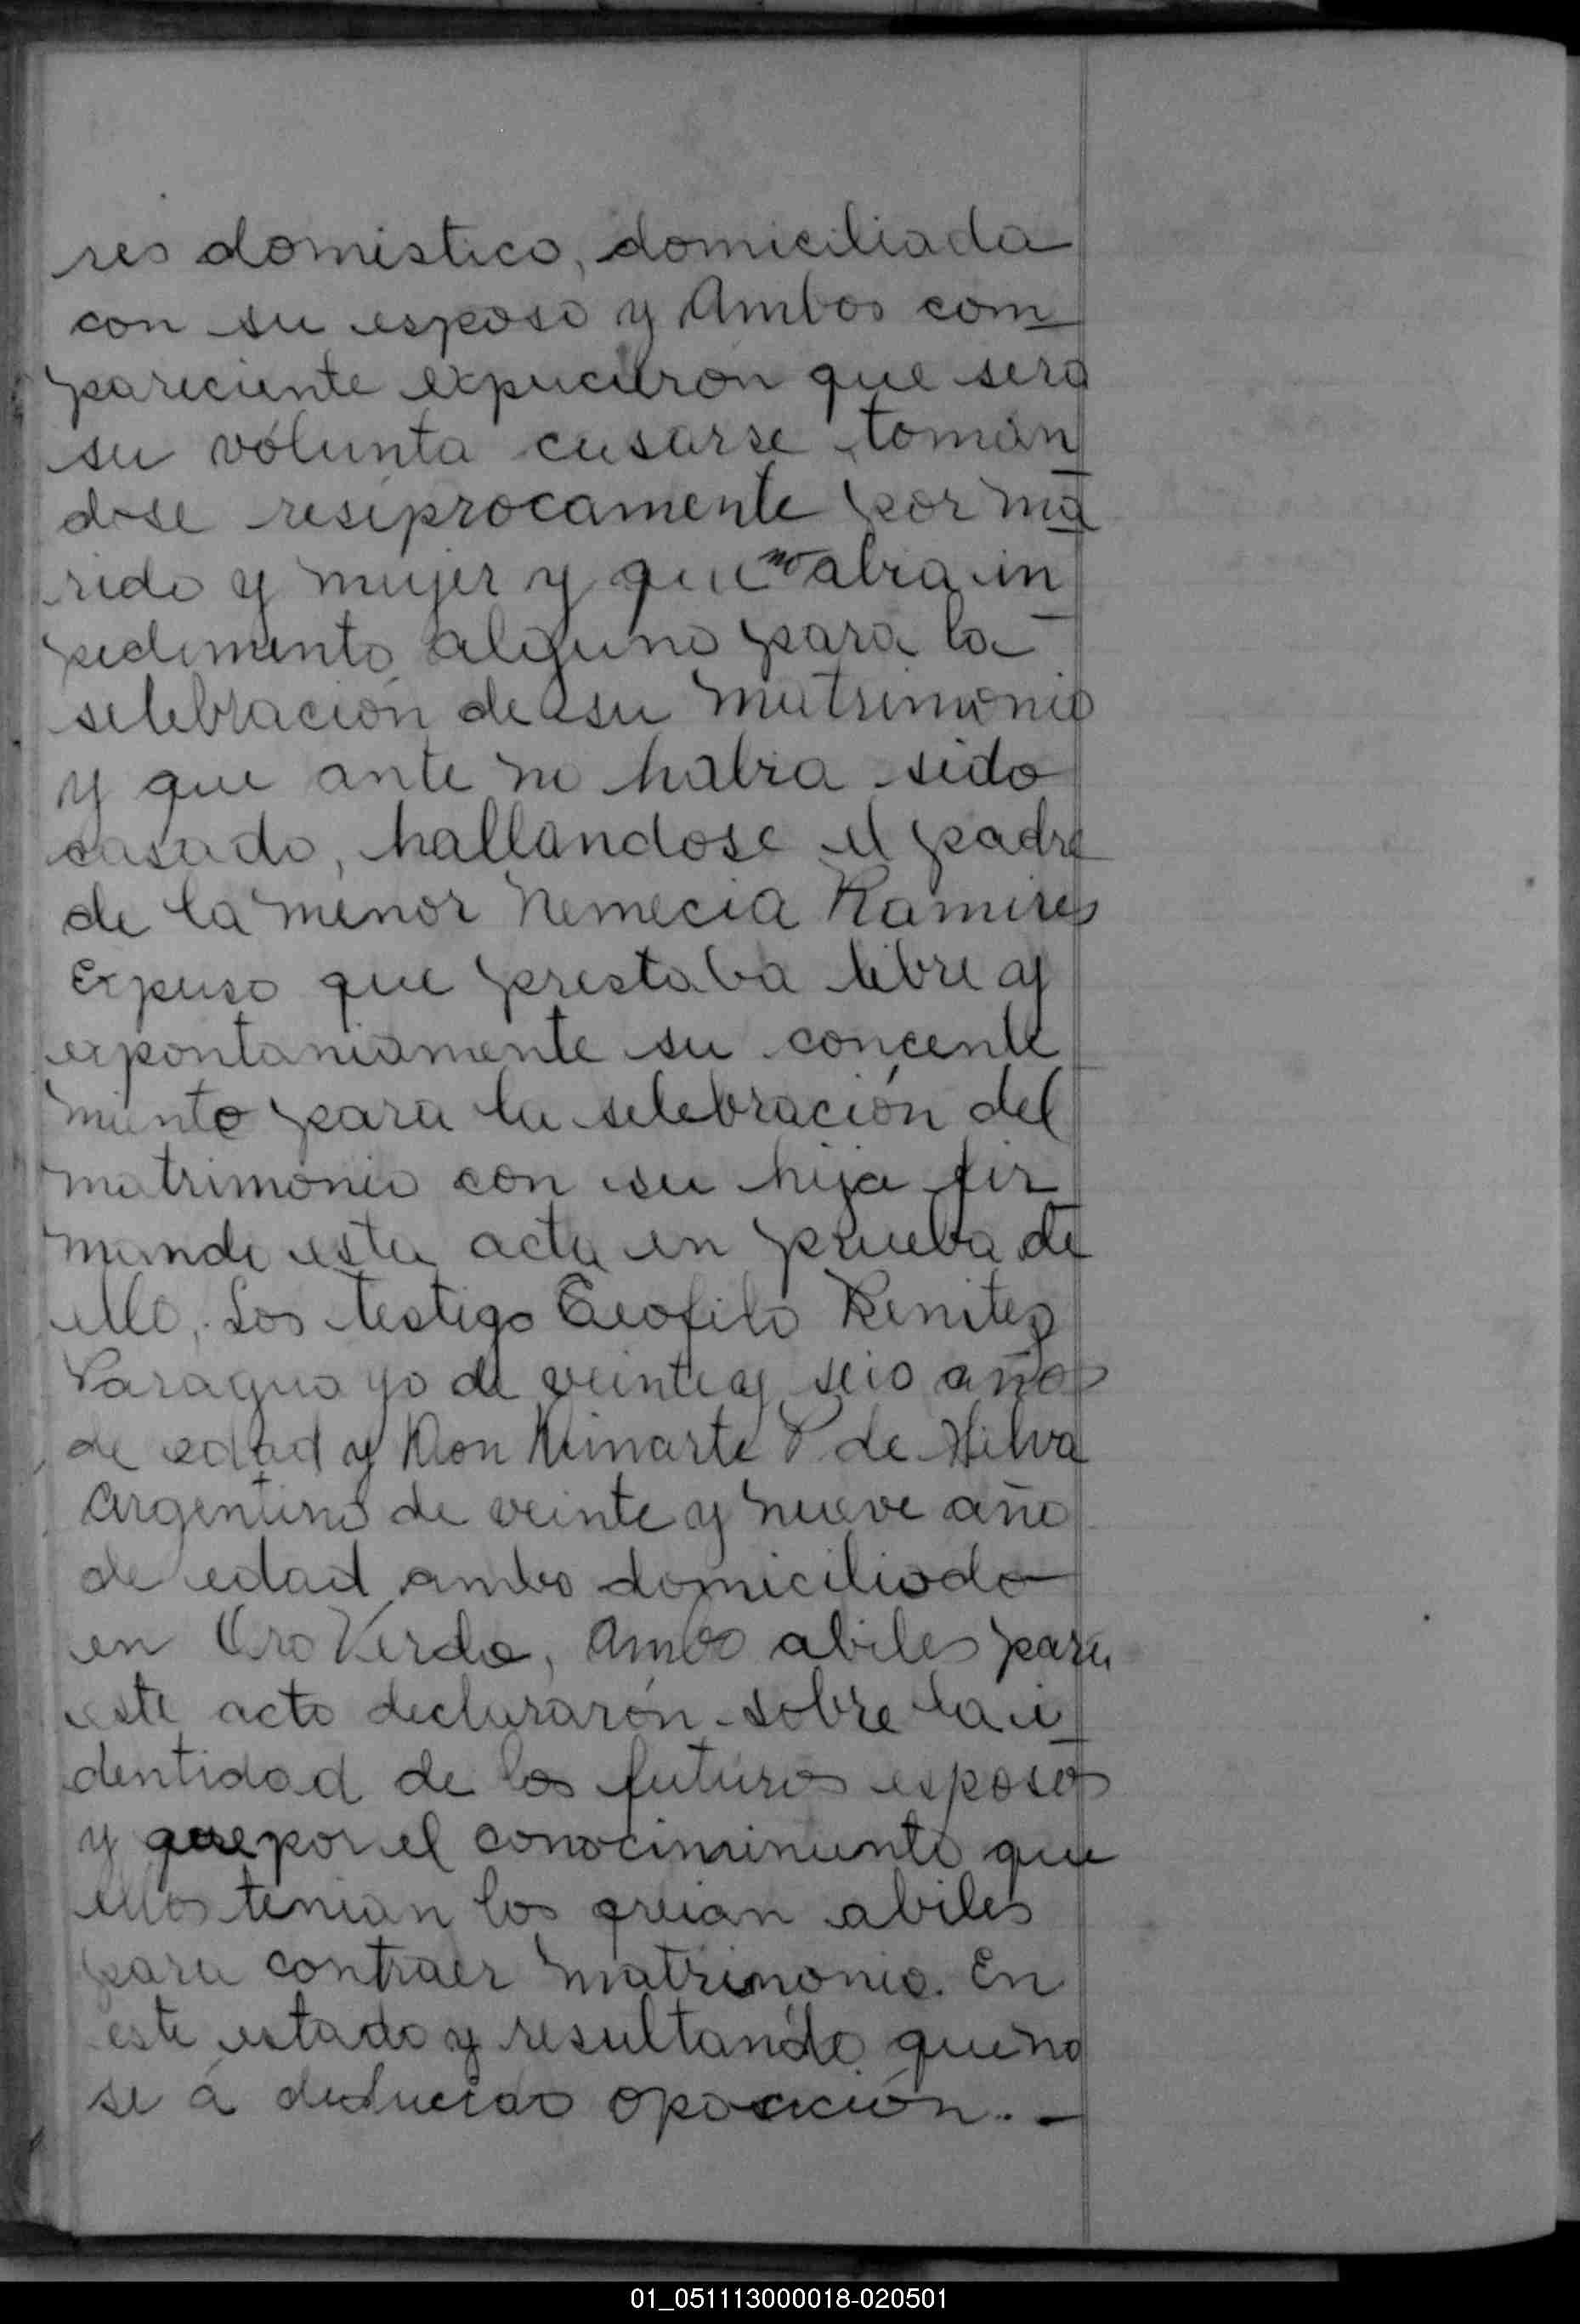 res domistico, domiciliada
con su esposo y Ambos com
pareciente expucieron que sera
su volunta casarse toman
dose resiprocamente por ma
rido y mujer y que no abra in
pedimento alguno para la
selebración de su matrimonio
y que ante no habra sido
casado, hallandose el padre
de la menor Nemecia Ramires
Expuso que prestaba libre y
expontaniamente su concente
miento para la selebración del
matrimonio con su hija fir
mando esta acta en prueba de
ello. Los testigo Teofilo Benites
Paraguayo de veinte y seis años
de edad y Don P. de Silva
Argentino de veinte y nueve año
de edad ambo domiciliado
en Oro Verde, Ambo abiles para
este acto declararón sobre la i
dentidad de los futuros esposos
y que por el conociminiento que
ellos tenian los creian abiles
para contraer matrimonio. En
este estado y resultando que no
se á deducido oposición. -
01_051113000018-020501